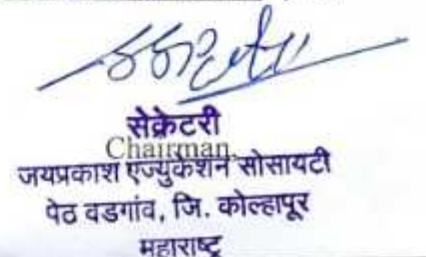 सेक्रेटरी
Chairman,
जयप्रकाश एज्युकेशन सोसायटी
पेठ वडगांव, जि. कोल्हापूर
महाराष्ट्र